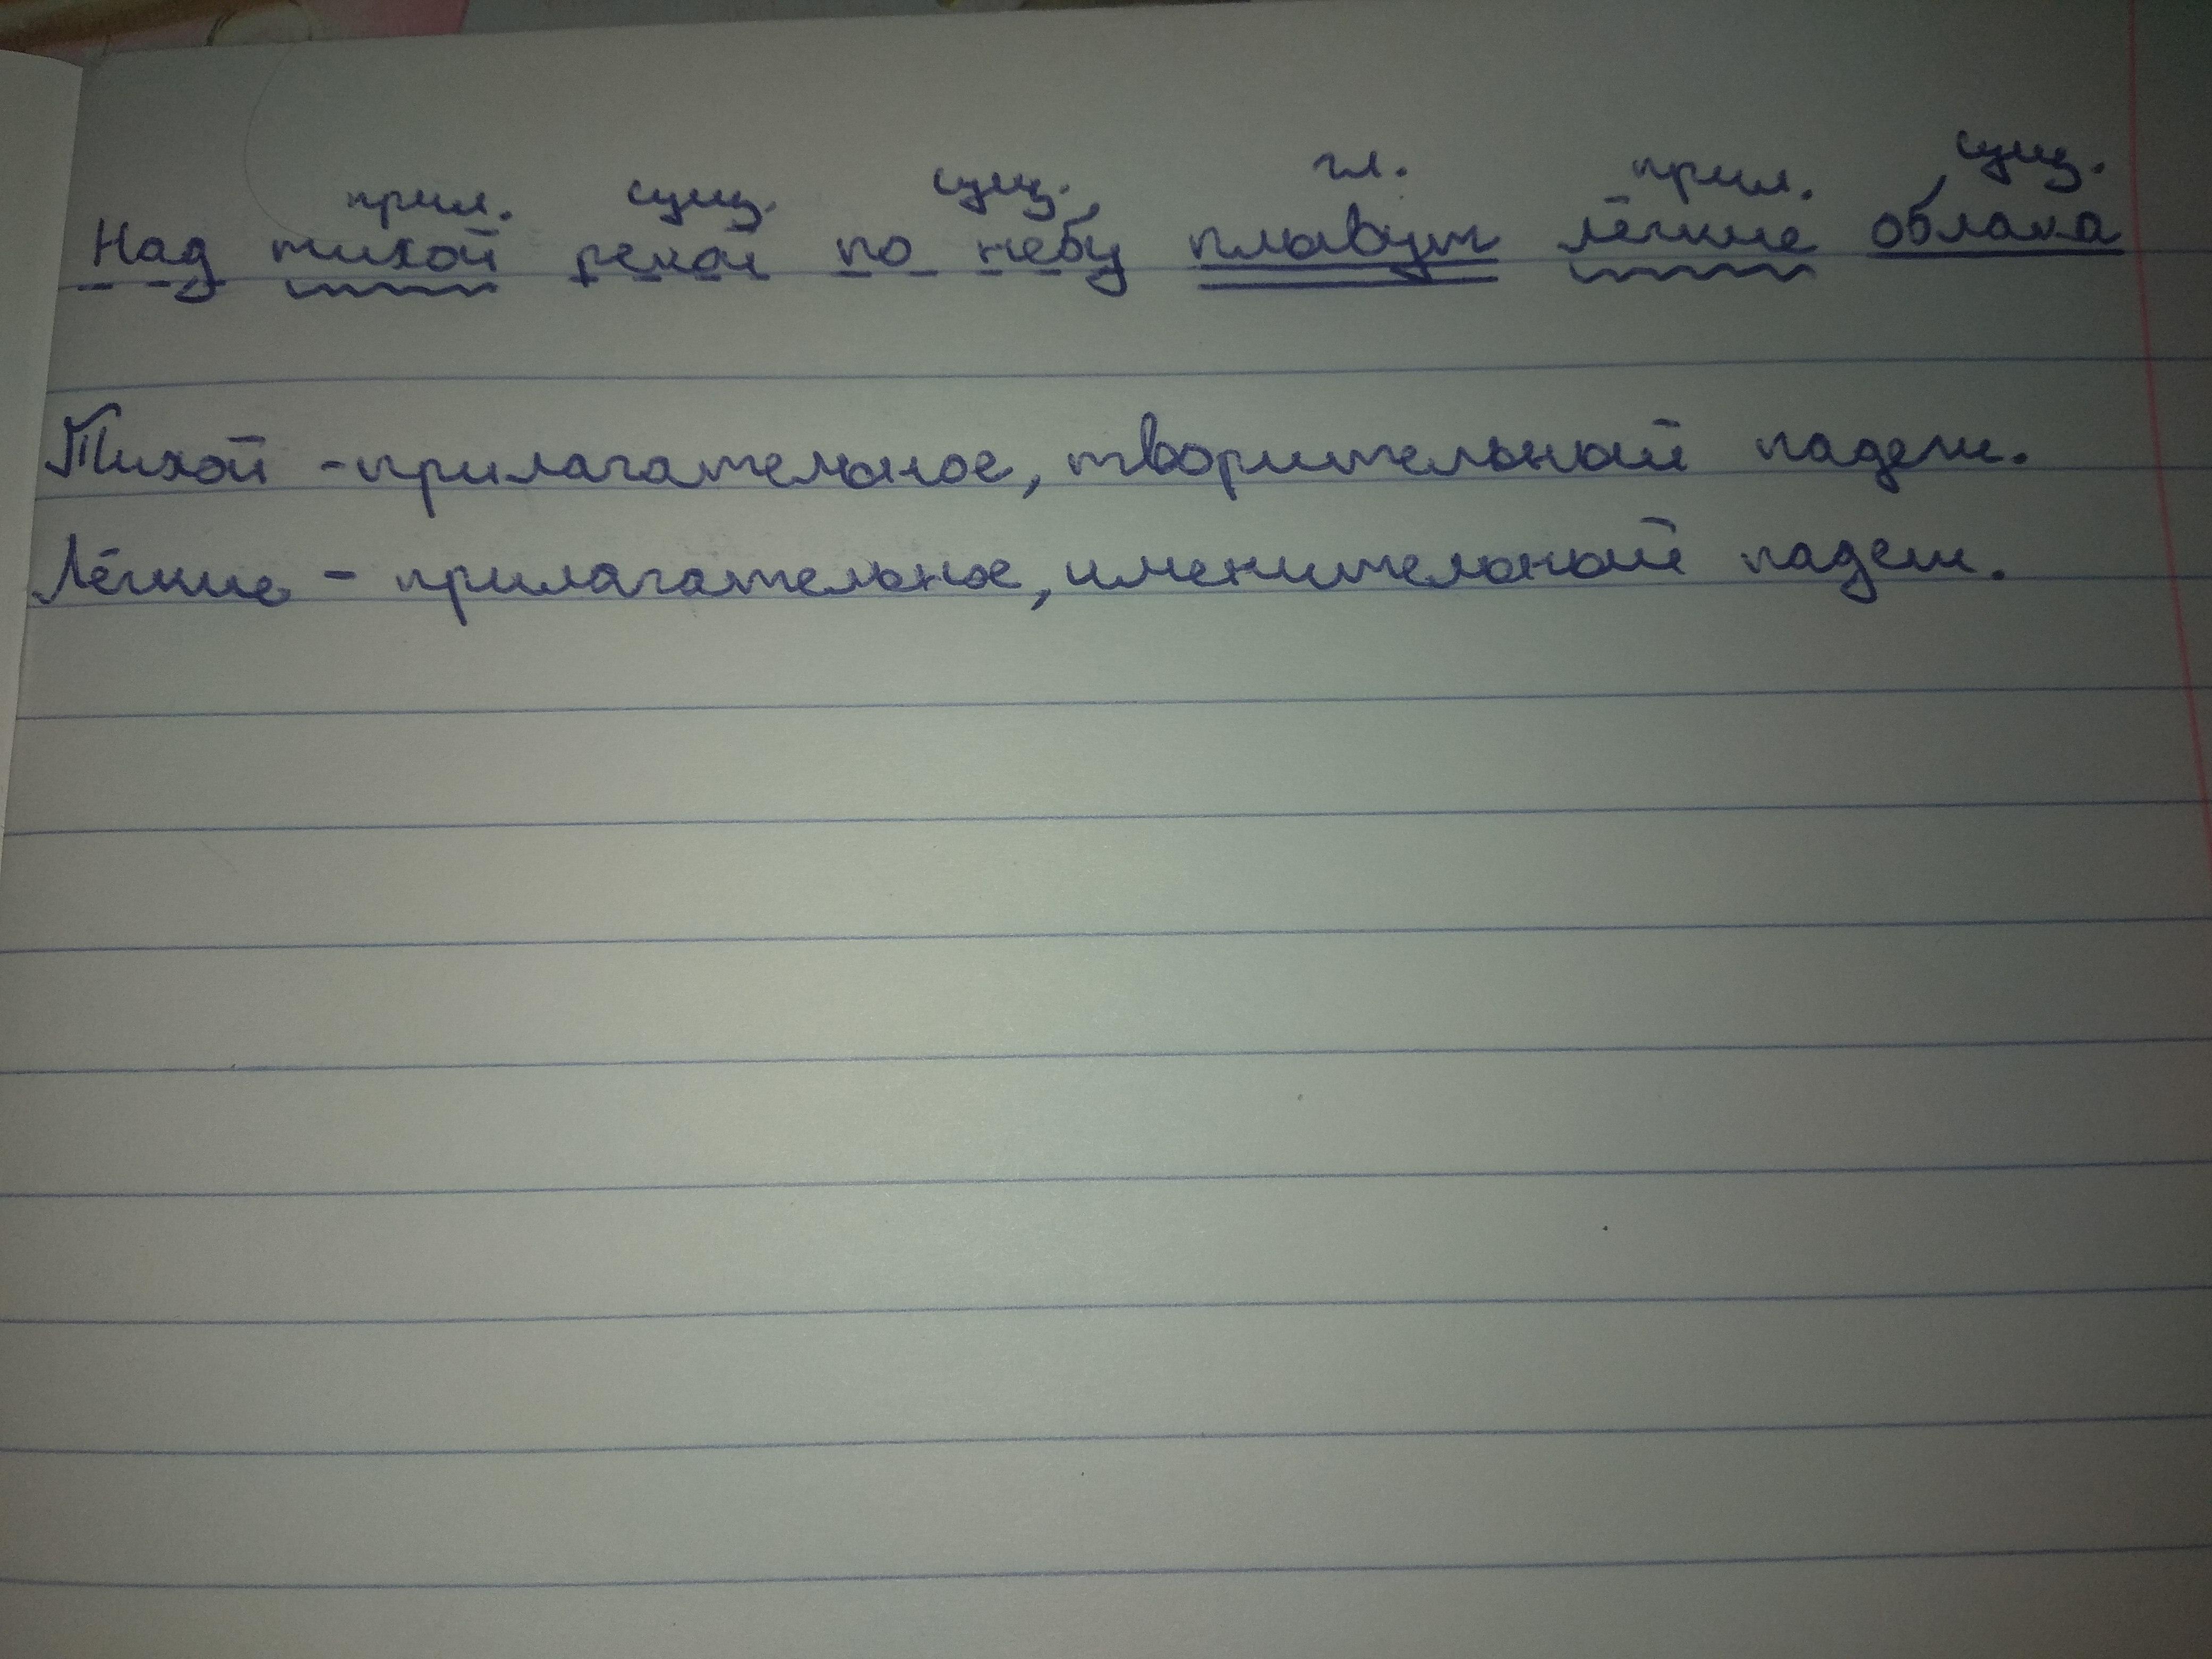 прил. сущ. сущ. гл. прил. сущ.
Над тихой рекой по небу плывут лёгкие облака
Тихой - прилагательное, творительный падеж.
Лёгкие - прилагательное, именительный падеж.